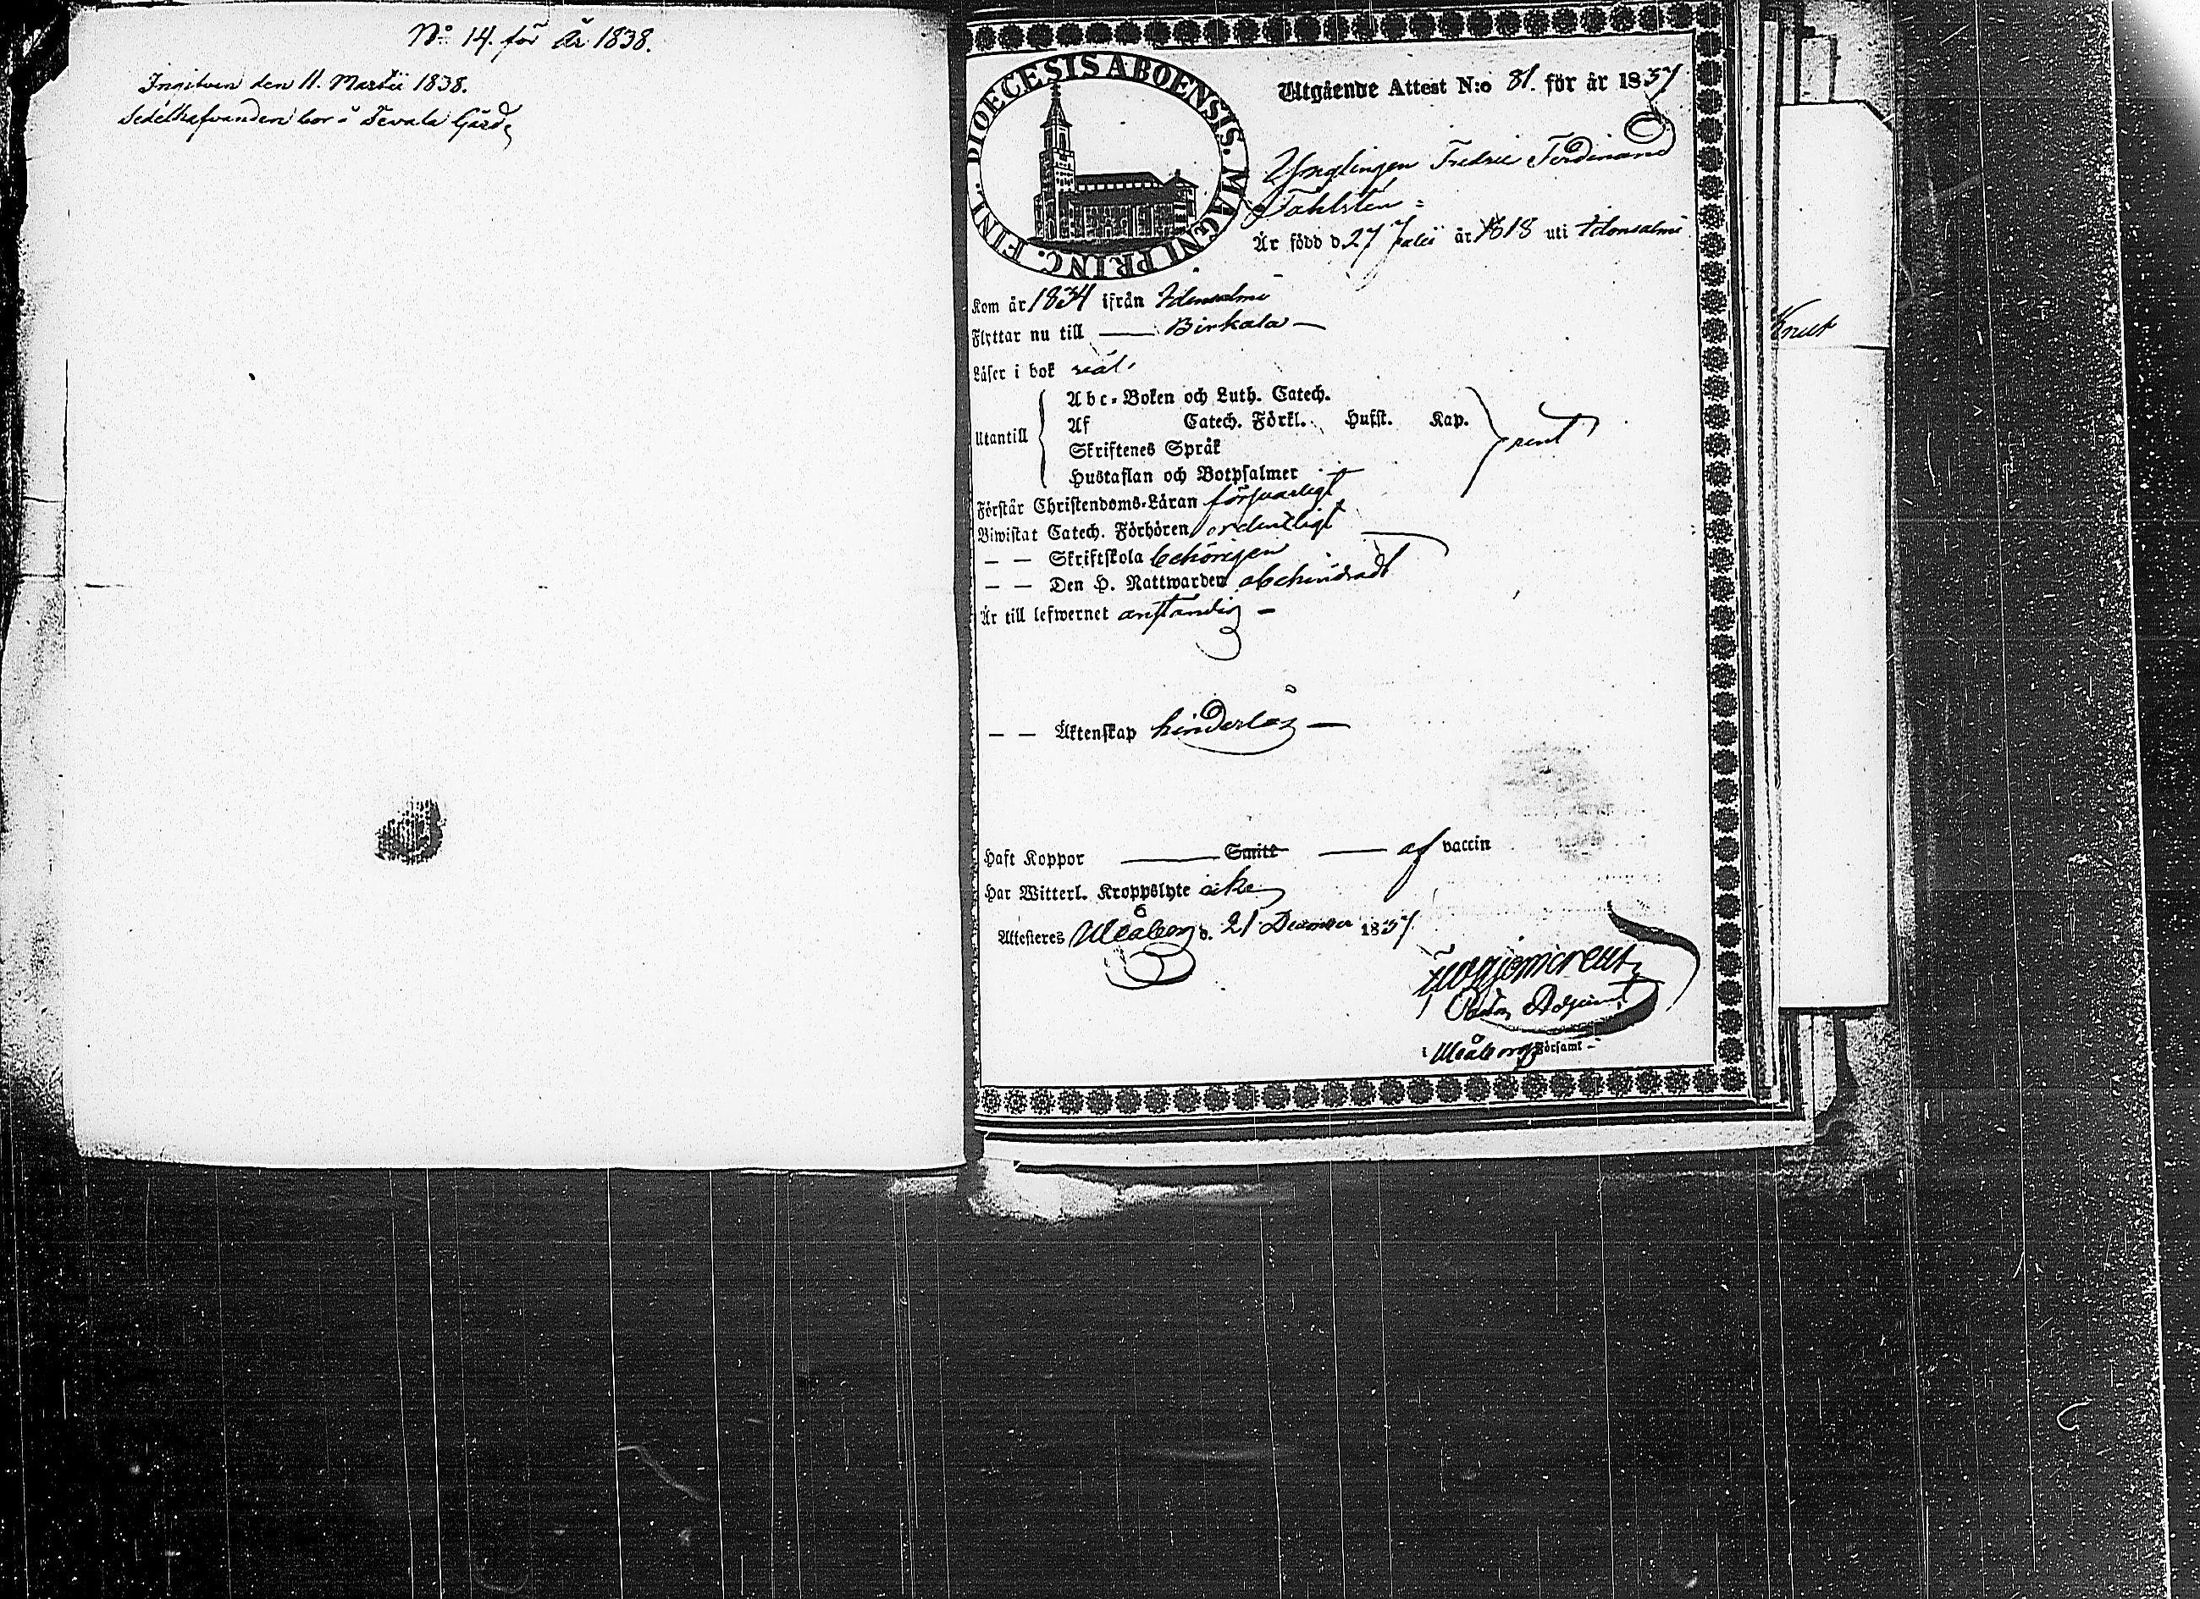 No 14. för År 1838.
Ingifven den 11. Martii 1838.
Sedelhafvanden bor å Tevala Gård
DIOECESIS ABOENSIS. MAGNI PRINC. FINL.
Utgående Attest N:o 81. för år 1837
Ynglingen Fredric Ferdinand
Fahlstén =
Är född d. 27 Julii år 1818 uti Idensalmi
Kom år 1834 ifrån Idensalmi
Flyttar nu till — Birkala —
Läser i bok väl
Utantill
Abc-Boken och Luth. Catech.
Af Catech. Förkl. Hufst. Kap.
Skriftenes Språk
Hustaflan och Botpsalmer
rent
Förstår Christendoms-Läran försvarligt
Biwistat Catech. Förhören ordentligt
— — Skriftskola behörigen
— — Den H. Nattwarden obehindradt
Är till lefwernet anständig —
— — Äktenskap hinderlös —
Haft Koppor — Smitt — af vaccin
Har Witterl. Kroppslyte icke
Attesteres Uleåborg d. 21 December 1837.
Adjunct
i Uleåborgs Församl.
Knut